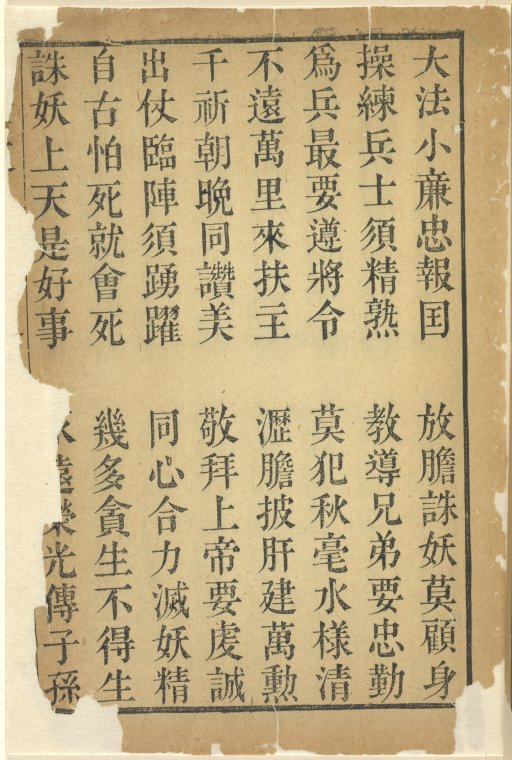 大法小亷忠報囯　放膽誅妖莫顧身
操練兵士須精熟　教導兄弟要忠勤
爲兵最要遵將令　莫犯秋毫水樣清
不遠萬里來扶主　瀝膽披肝建萬勳
千祈朝晚同讚美　敬拜上帝要虔誠
出仗臨陣須踴躍　同心合力滅妖精
自古怕死就會死　幾多貪生不得生
誅妖上天是好事　永遠榮光傳子孫